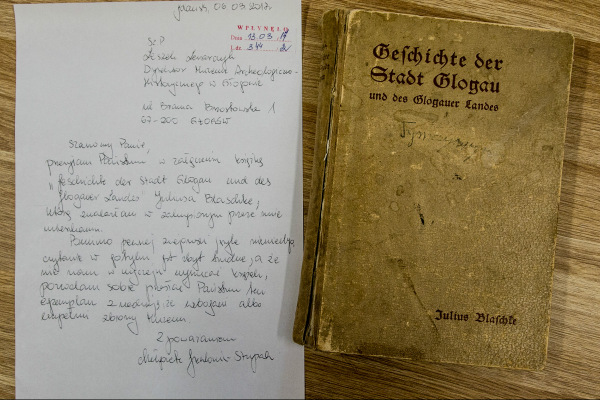 06 03 2017.
WPŁYNĘŁO
Dnia 13.03
L.dz. 344
Sz.P
Leszek
Dyrektor Muzeum Archeologiczno-
Historycznego w Głogowie
ul Brama Brzostowska 1
67-200 GŁOGÓW
Szanowny Panie,
przesyłam Państwu w załączeniu książkę
"Geschichte der Stadt Glogau und des
Glogauer Landes" Juliusa Blaschke,
którą znalazłam w zakupionym przez mnie
mieszkaniu.
Pomimo pewnej znajomości języka niemieckiego
czytanie w gotyku jest zbyt trudne, a że
nie mam w zwyczaju wyrzucać książek,
pozwalam sobie przesłać Państwu ten
egzemplarz z nadzieją, że wzbogaci albo
uzupełni zbiory Muzeum
Z poważaniem
Geschichte der
Stadt Glogau
und des Glogauer Landes
Julius Blaschke